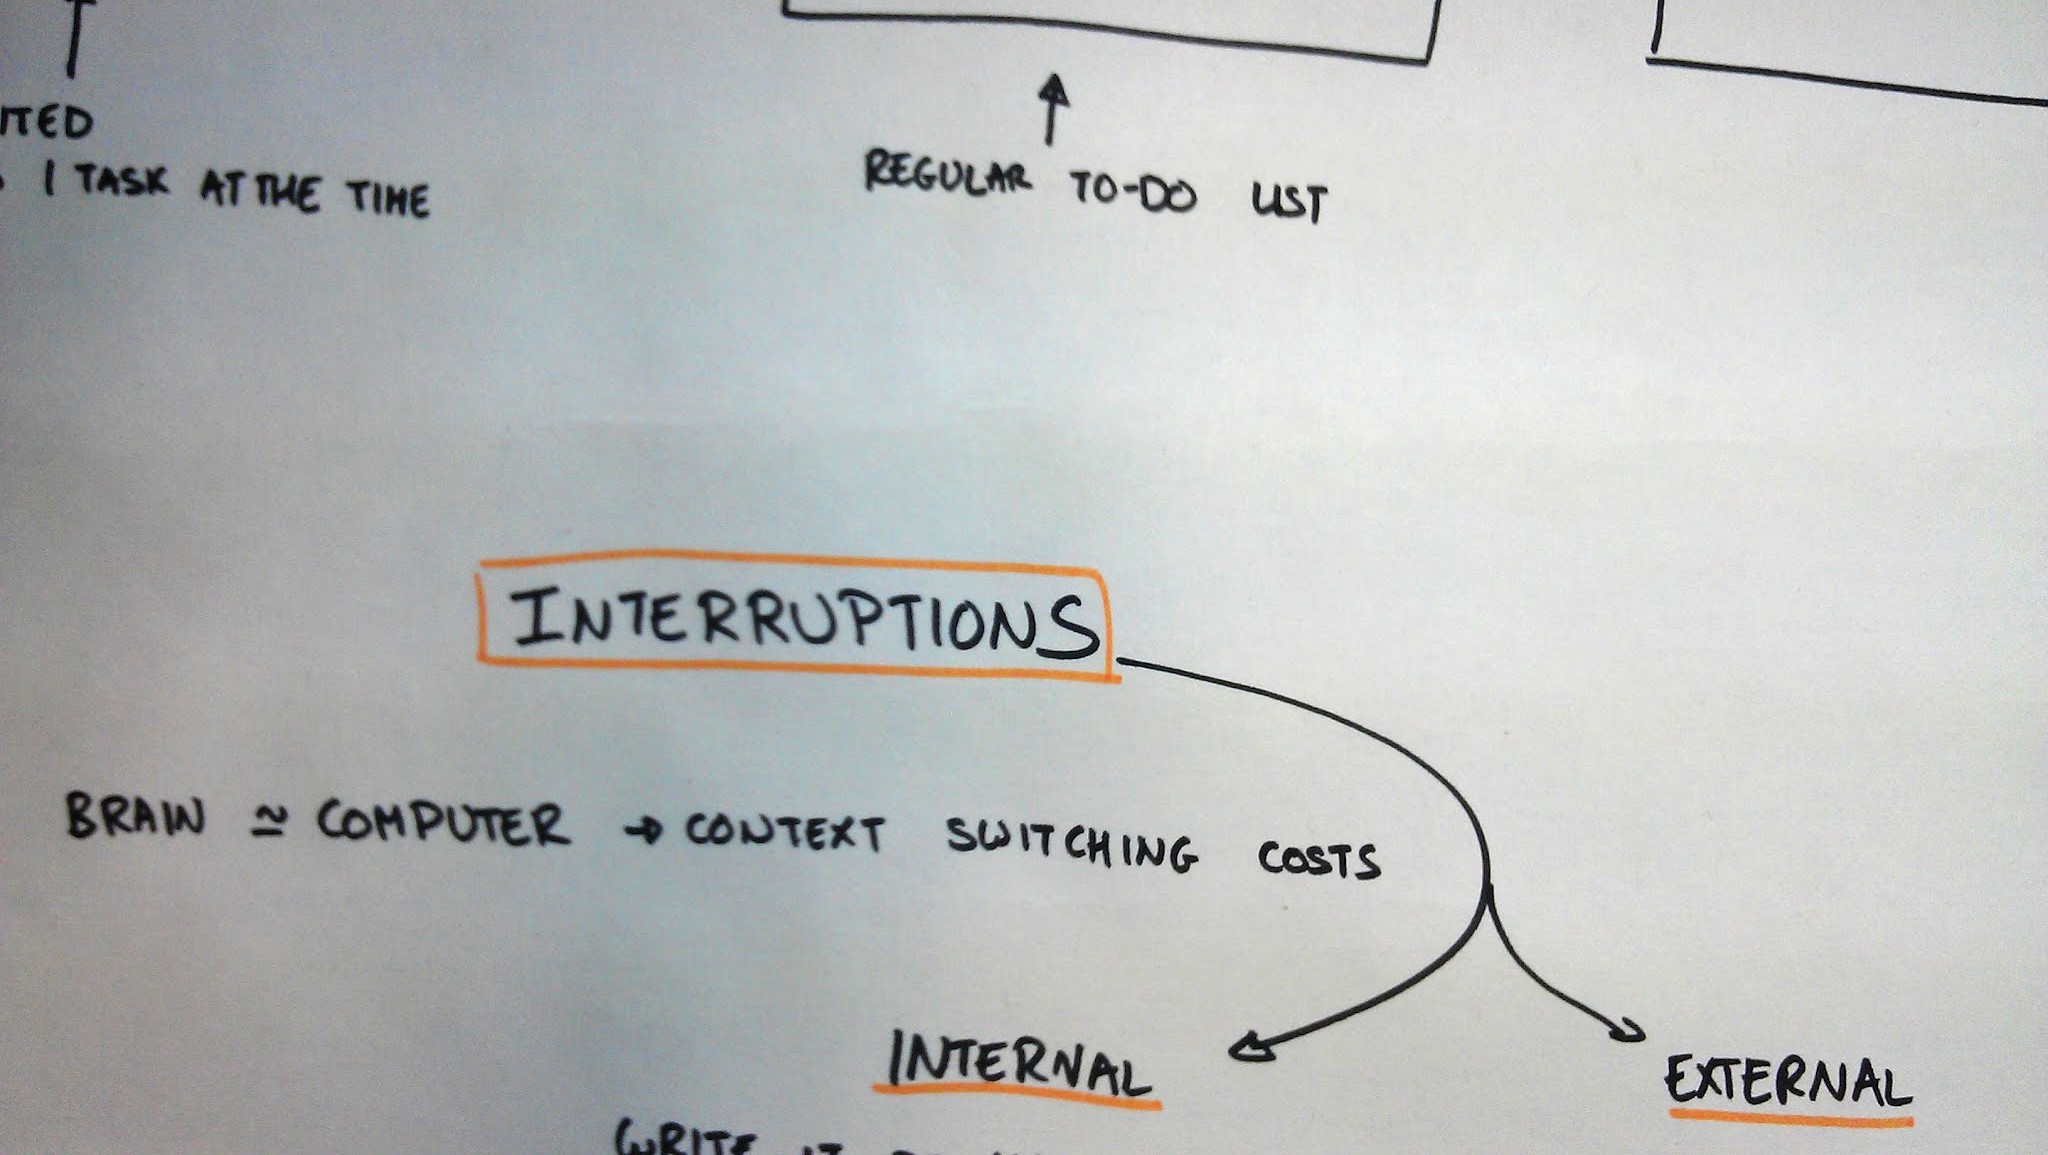 1 TASK AT THE TIME
REGULAR TO-DO LIST
INTERRUPTIONS
BRAIN ≃ COMPUTER → CONTEXT SWITCHING COSTS
INTERNAL
EXTERNAL
WRITE IT